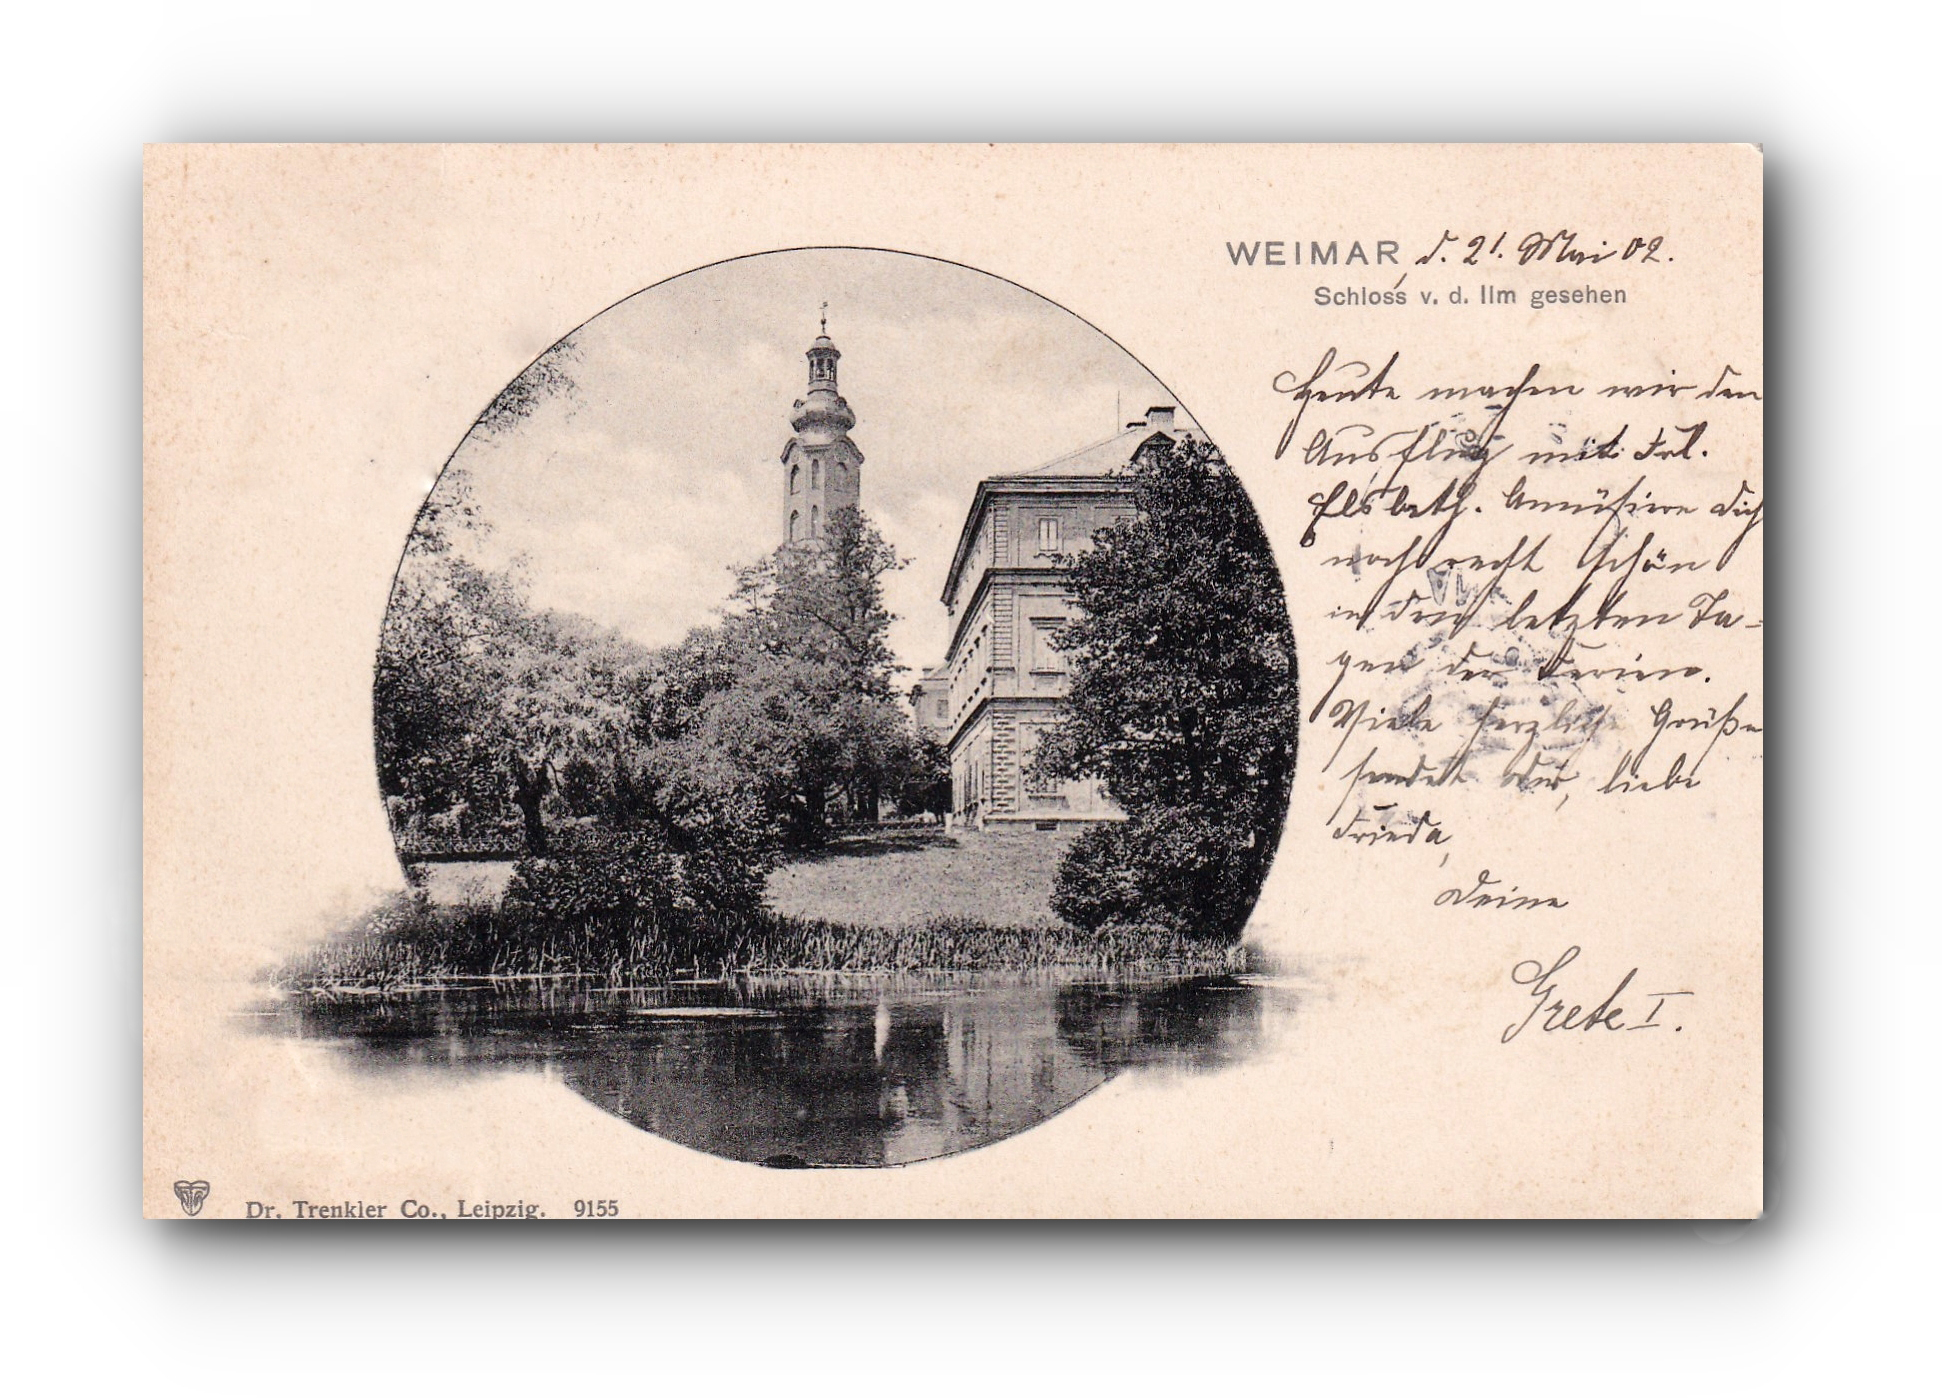 WEIMAR, d. 21. Mai 02.
Schloss v. d. Ilm gesehen
Heute machen wir den
Ausflug mit Frl.
Elsbeth. Amüsiere Dich
noch recht schön
in den letzten Ta-
gen der Ferien.
Viele herzliche Grüße
sendet Dir, liebe
Frieda,
Deine
Grete I.
Dr. Trenkler Co., Leipzig. 9155